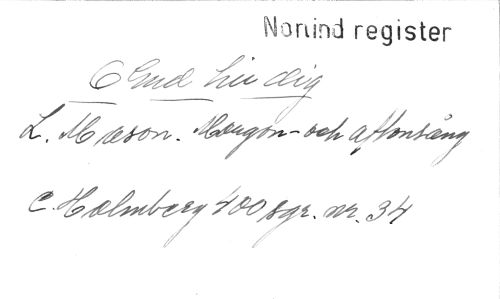 Norlind register
O Gud hu dig
L. Mason. Morgon- och aftonsång
C. Holmberg 400 sgr. nr. 34